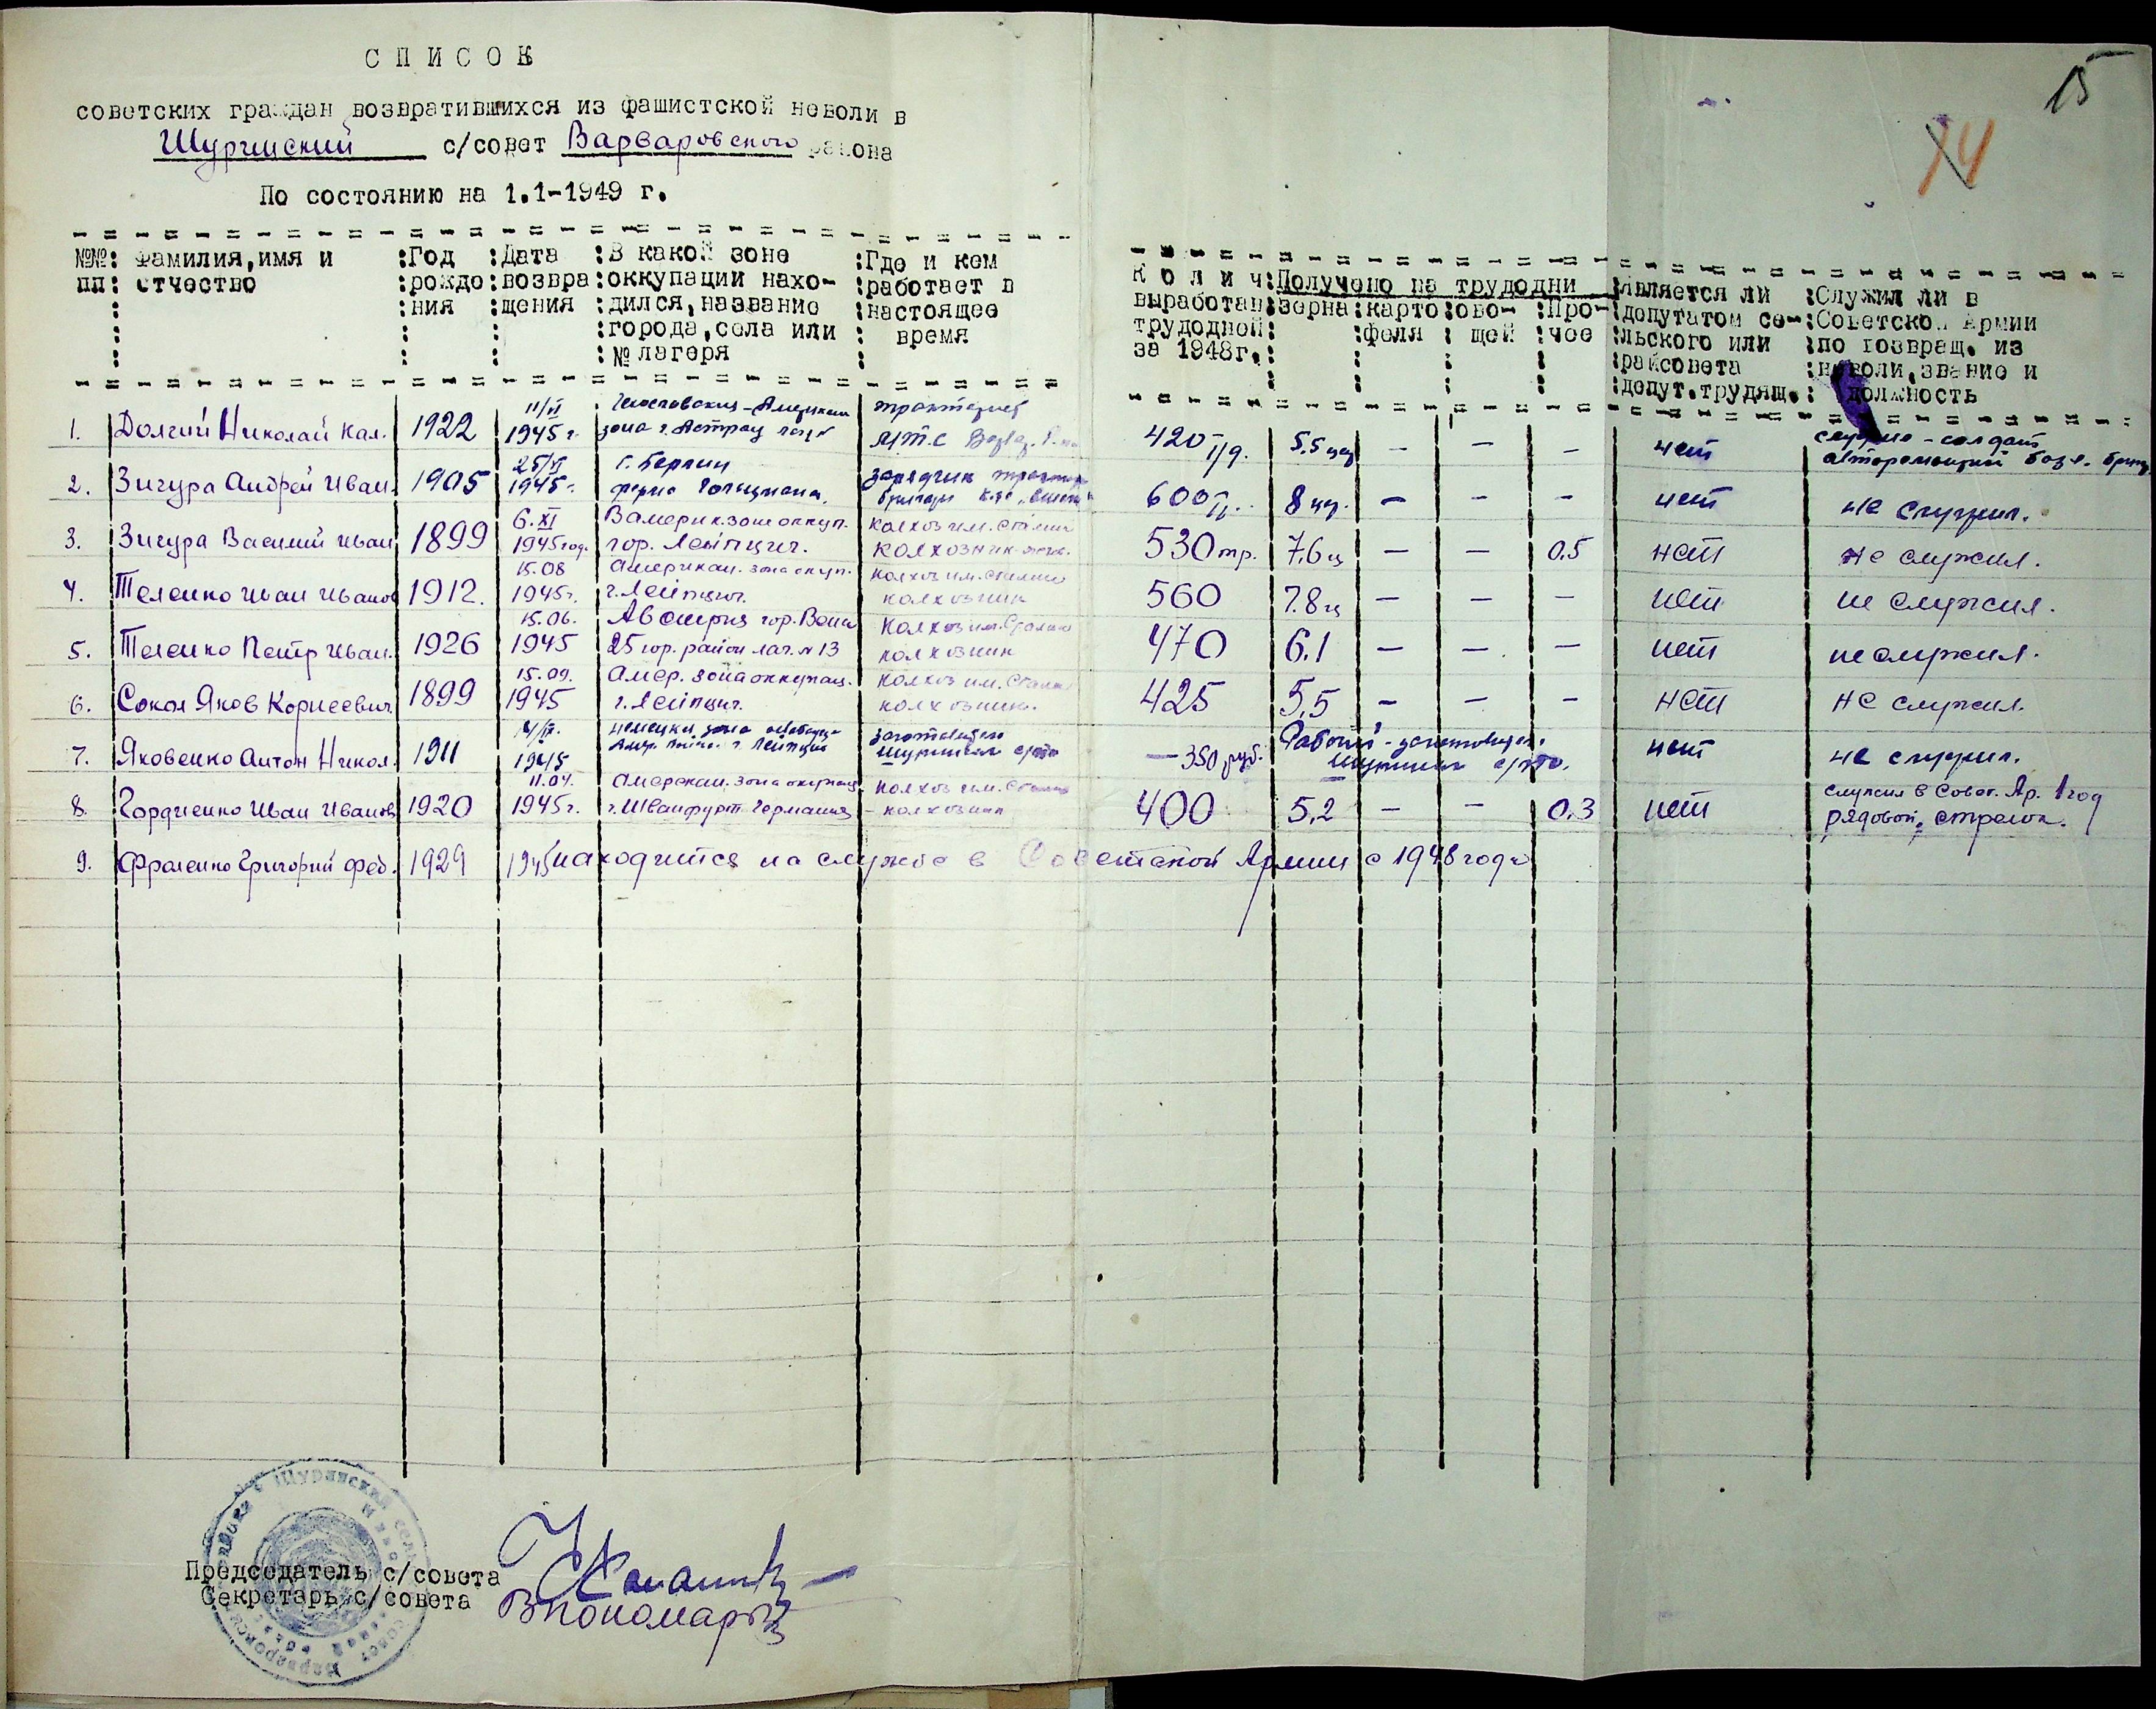 СПИСОК
советских граждан возвратившихся из фашистской неволи в
Щуринский с/совет Варваровского района
По состоянию на 1.1-1949 г.
15
14
№№ пп : Фамилия, имя и отчество : Год рождения : Дата возвращения : В какой зоне оккупации находился, название города, села или № лагеря : Где и кем работает в настоящее время : Колич. выработан трудодней за 1948г. : Получено на трудодни : зерна : картофеля : овощей : Прочее : Является ли депутатом сельского или райсовета депут. трудящ. : Служил ли в Советской Армии по возвращ. из неволи, звание и должность
1. Долгий Николай Кал. 1922 11/VI 1945 г. зона г. тракторист М.Т.С. 420 т/д. 5.5 цен — — — нет служил - солдат
2. Зигура Андрей Иван. 1905 25/VI 1945 г. г. Берлин ферма бригады 600 т/д. 8 ц. — — — нет не служил.
3. Зигура Василий Иван 1899 6.XI 1945 год. В америк. зоне оккуп. гор. Лейпциг. колхоз им. Сталина колхозник 530 тр. 7,6 ц — — 0.5 нет не служил.
4. Теленко Иван Иванов 1912. 15.08 1945 г. Американ. зона окуп. г. Лейпциг. колхоз им. Сталина колхозник 560 7.8 ц — — — нет не служил.
5. Теленко Петр Иван. 1926 15.06. 1945 Австрия гор. Вена 25 гор. район лаг. № 13 колхоз им. Сталина колхозник 470 6.1 — — — нет не служил.
6. Сокол Яков Корнеевич 1899 15.09. 1945 Амер. зона оккупац. г. Лейпциг. колхоз им. Сталина колхозник. 425 5,5 — — — нет не служил.
7. Яковенко Антон Никол. 1911 1945 зона г. Лейпциг — 350 руб. Рабочий - нет не служил.
8. Гордиенко Иван Иванов 1920 11.04. 1945 г. Американ. зона окупац. г. Швайфурт Германия колхоз им. Сталина - колхозник 400 5,2 — — 0.3 нет служил в Совет. Ар. 1 год рядовой, стрелок.
9. Фроленко Григорий Фед. 1929 1945 находится на службе в Советской Армии с 1948 года
Председатель с/совета
Секретарь с/совета